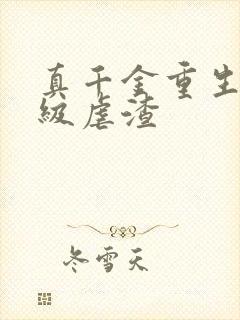 真千金重生
级虐渣
冬雪天